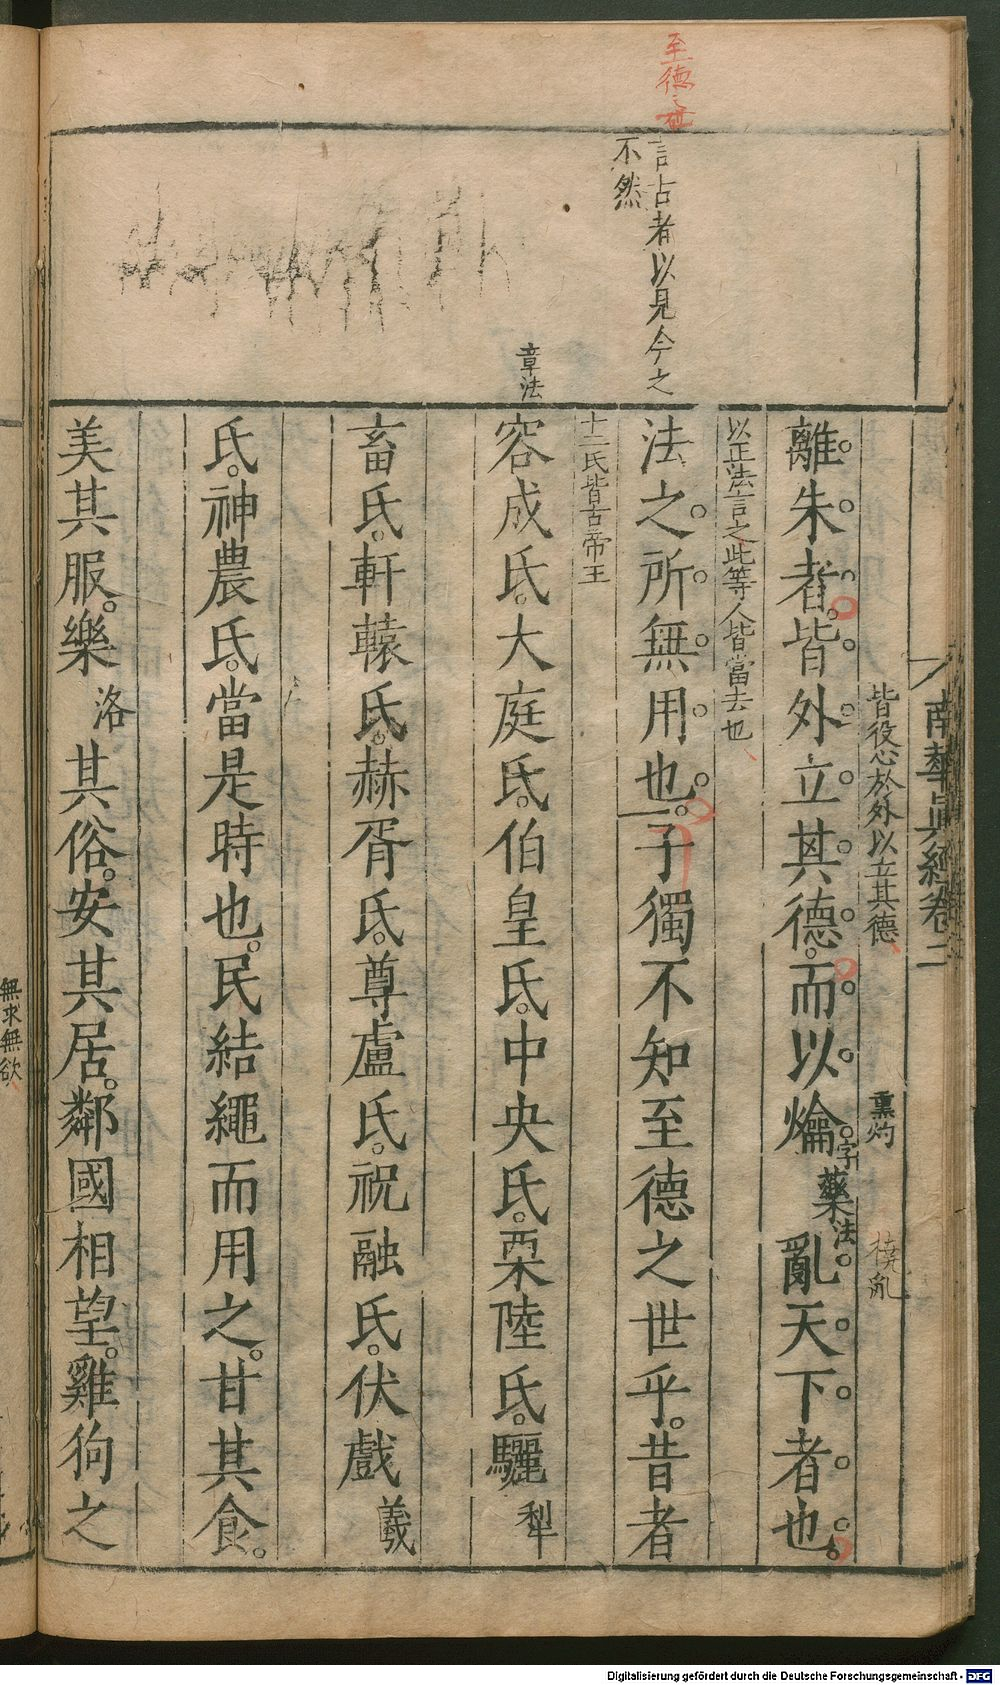 至德之世
言古者以見今之
不然
章法
南華眞經卷二
皆役心於外以立其德
熏灼
撓亂
離朱者。皆外立其德。而以爚藥亂天下者也。
字法
以正法言之此等人皆當去也
法之所無用也。子獨不知至德之世乎。昔者
十二氏皆古帝王
容成氏。大庭氏。伯皇氏。中央氏。栗陸氏。驪犁
畜氏。軒轅氏。赫胥氏。尊盧氏。祝融氏。伏戲羲
氏。神農氏。當是時也。民結繩而用之。甘其食。
美其服。樂洛其俗。安其居。鄰國相望。雞狗之
無求無欲
Digitalisierung gefördert durch die Deutsche Forschungsgemeinschaft - DFG